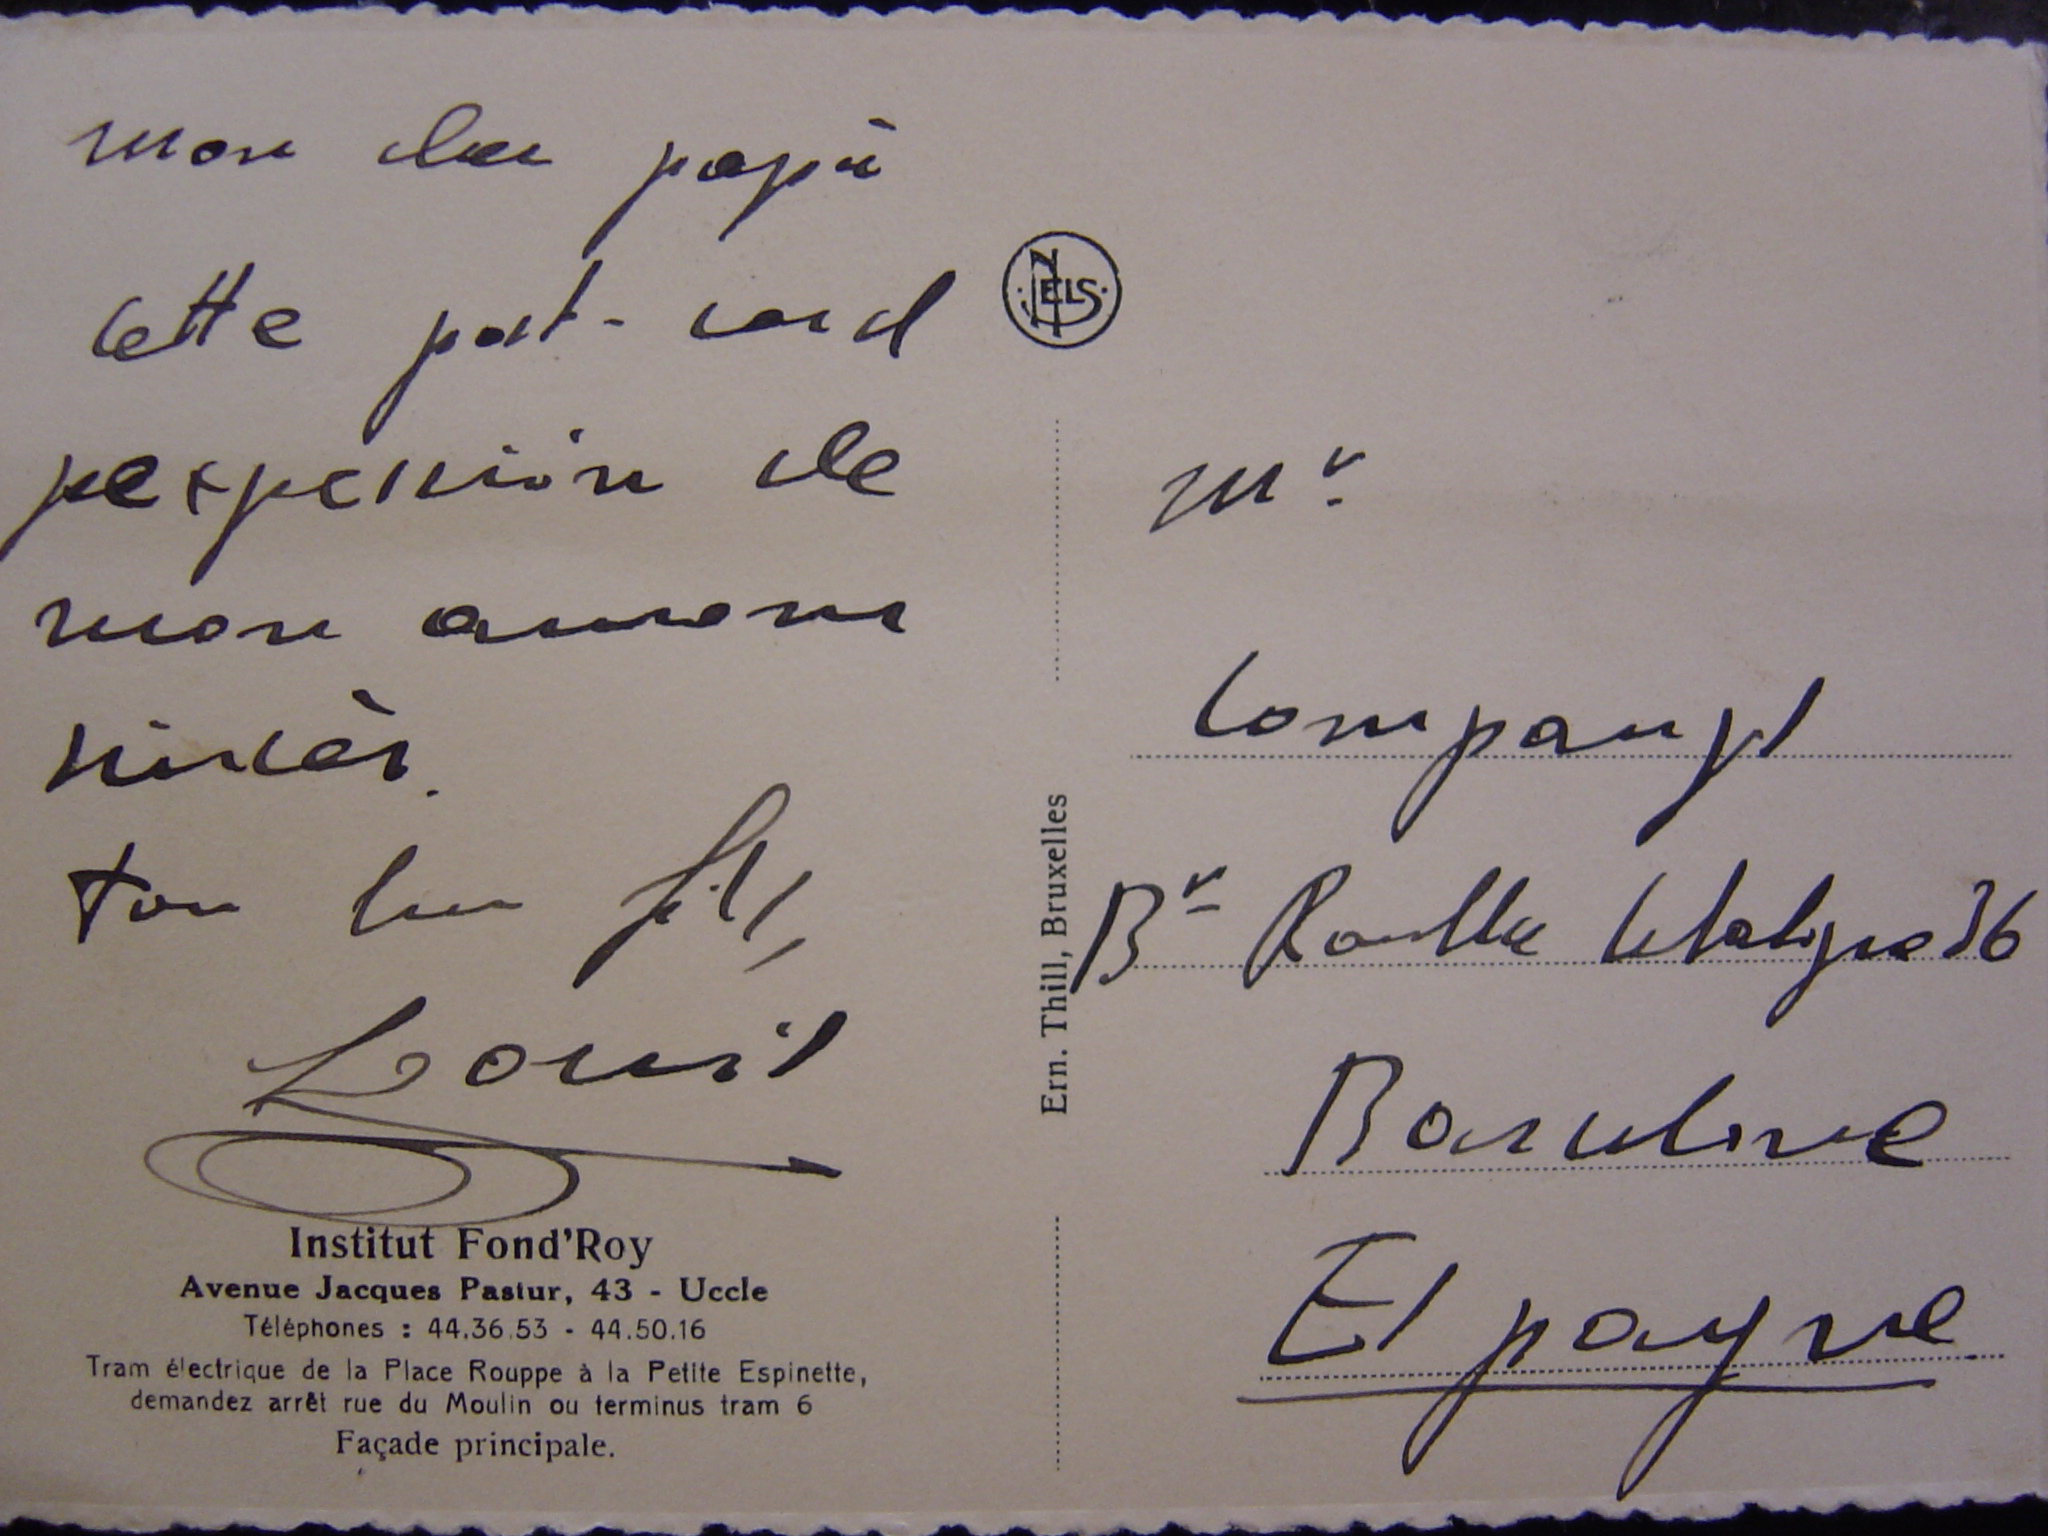 mon cher papà
cette post-card
expression de
mon amour
sincèr.
ton fils,
Louis
Institut Fond'Roy
Avenue Jacques Pastur, 43 - Uccle
Téléphones : 44.36.53 - 44.50.16
Tram électrique de la Place Rouppe à la Petite Espinette,
demandez arrêt rue du Moulin ou terminus tram 6
Façade principale.
NELS
Ern. Thill, Bruxelles
Mr.
Companys
36
Barcelone
Espagne